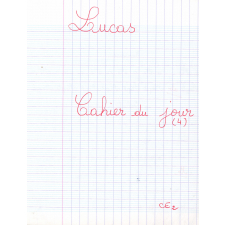 Lucas
Cahier du jour
(4)
CE2